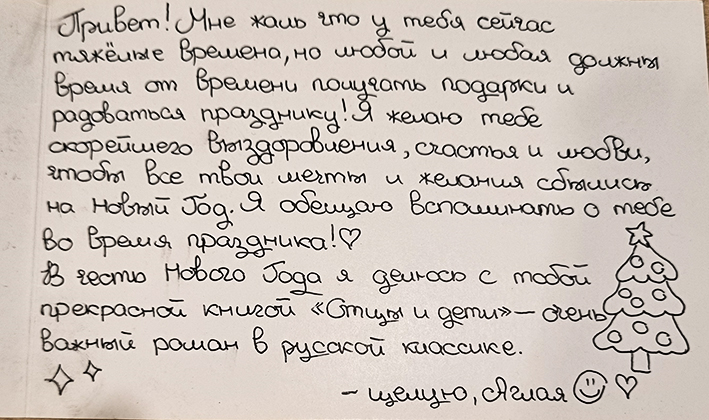 Привет! Мне жаль что у тебя сейчас
тяжёлые времена, но любой и любая должны
время от времени получать подарки и
радоваться празднику! Я желаю тебе
скорейшего выздоровления, счастья и любви,
чтобы все твои мечты и желания сбылись
на Новый Год. Я обещаю вспоминать о тебе
во время праздника!♡
В честь Нового Года я делюсь с тобой
прекрасной книгой «Отцы и дети» — очень
важный роман в русской классике.
– целую, Аглая ☺ ♡